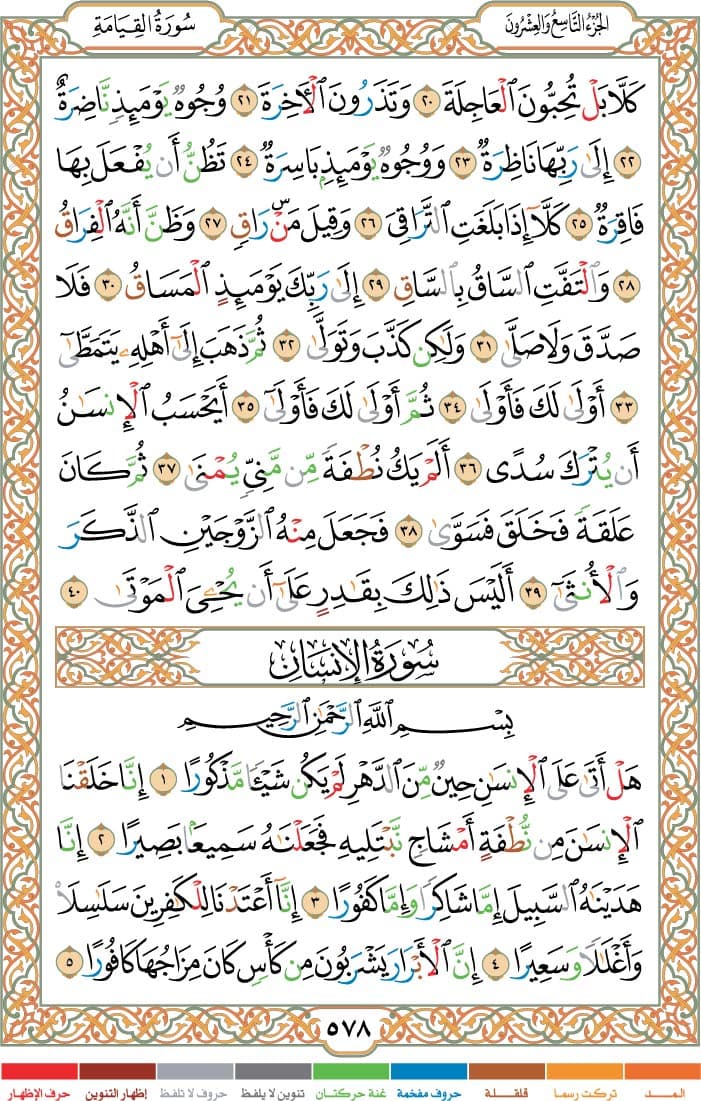 سُورَةُ القِيَامَةِ
الجُزْءُ التَّاسِعُ وَالعِشْرُونَ
كَلَّا بَلْ تُحِبُّونَ ٱلْعَاجِلَةَ ٢٠ وَتَذَرُونَ ٱلْأَخِرَةَ ٢١ وُجُوهٌ يَوْمَئِذٍ نَّاضِرَةٌ
٢٢ إِلَىٰ رَبِّهَا نَاظِرَةٌ ٢٣ وَوُجُوهٌ يَوْمَئِذٍ بَاسِرَةٌ ٢٤ تَظُنُّ أَن يُفْعَلَ بِهَا
فَاقِرَةٌ ٢٥ كَلَّآ إِذَا بَلَغَتِ ٱلتَّرَاقِيَ ٢٦ وَقِيلَ مَنْ رَاقٍ ٢٧ وَظَنَّ أَنَّهُ ٱلْفِرَاقُ
٢٨ وَٱلْتَفَّتِ ٱلسَّاقُ بِٱلسَّاقِ ٢٩ إِلَىٰ رَبِّكَ يَوْمَئِذٍ ٱلْمَسَاقُ ٣٠ فَلَا
صَدَّقَ وَلَا صَلَّىٰ ٣١ وَلَٰكِن كَذَّبَ وَتَوَلَّىٰ ٣٢ ثُمَّ ذَهَبَ إِلَىٰٓ أَهْلِهِۦ يَتَمَطَّىٰٓ
٣٣ أَوْلَىٰ لَكَ فَأَوْلَىٰ ٣٤ ثُمَّ أَوْلَىٰ لَكَ فَأَوْلَىٰٓ ٣٥ أَيَحْسَبُ ٱلْإِنسَٰنُ
أَن يُتْرَكَ سُدًى ٣٦ أَلَمْ يَكُ نُطْفَةً مِّن مَّنِيٍّ يُمْنَىٰ ٣٧ ثُمَّ كَانَ
عَلَقَةً فَخَلَقَ فَسَوَّىٰ ٣٨ فَجَعَلَ مِنْهُ ٱلزَّوْجَيْنِ ٱلذَّكَرَ
وَٱلْأُنثَىٰٓ ٣٩ أَلَيْسَ ذَٰلِكَ بِقَٰدِرٍ عَلَىٰٓ أَن يُحْـِۧيَ ٱلْمَوْتَىٰ ٤٠
سُورَةُ الإِنسَانِ
بِسْمِ ٱللَّهِ ٱلرَّحْمَٰنِ ٱلرَّحِيمِ
هَلْ أَتَىٰ عَلَى ٱلْإِنسَٰنِ حِينٌ مِّنَ ٱلدَّهْرِ لَمْ يَكُن شَيْـًٔا مَّذْكُورًا ١ إِنَّا خَلَقْنَا
ٱلْإِنسَٰنَ مِن نُّطْفَةٍ أَمْشَاجٍ نَّبْتَلِيهِ فَجَعَلْنَٰهُ سَمِيعًۢا بَصِيرًا ٢ إِنَّا
هَدَيْنَٰهُ ٱلسَّبِيلَ إِمَّا شَاكِرًا وَإِمَّا كَفُورًا ٣ إِنَّآ أَعْتَدْنَا لِلْكَٰفِرِينَ سَلَٰسِلَا۟
وَأَغْلَٰلًا وَسَعِيرًا ٤ إِنَّ ٱلْأَبْرَارَ يَشْرَبُونَ مِن كَأْسٍ كَانَ مِزَاجُهَا كَافُورًا ٥
٥٧٨
المــد
تركت رسما
قلقلة
حروف مفخمة
غنة حركتان
تنوين لا يلفظ
حروف لا تلفظ
إظهار التنوين
حرف الإظهار